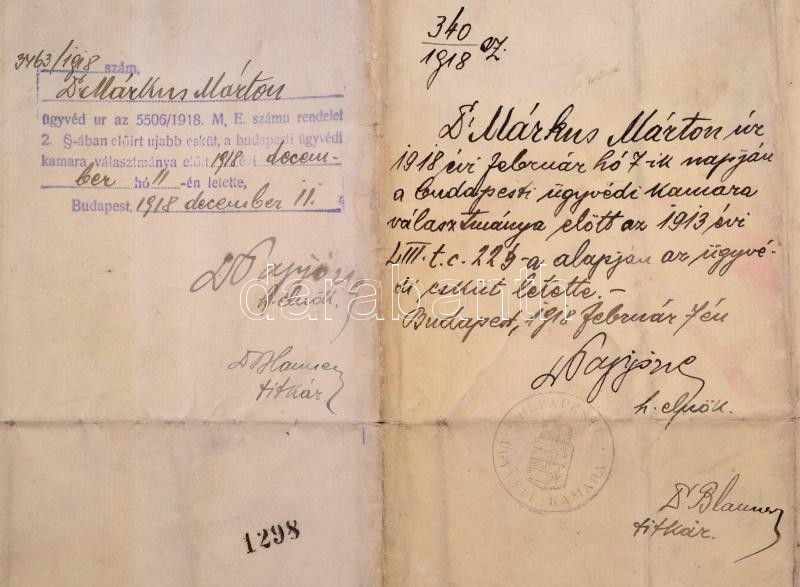 3463/1918 szám,
Dr Márkus Márton
ügyvéd ur az 5506/1918. M. E. számu rendelet
2. §-ában előirt ujabb esküt, a budapesti ügyvédi
kamara választmánya előtt 1918 évi decem-
ber hó 11 -én letette,
Budapest, 1918 december 11.
h. elnök.
Dr Blauner
titkár
1298
340
1918 sz.
Dr Márkus Márton úr
1918 évi február hó 7-ik napján
a budapesti ügyvédi kamara
választmánya előtt az 1913 évi
LIII. t. c. 22§-a alapján az ügyvé-
di esküt letette. –
Budapest, 1918 február 7én
h. elnök.
BUDAPESTI
ÜGYVÉDI KAMARA
Dr Blauner
titkár.
darabanth